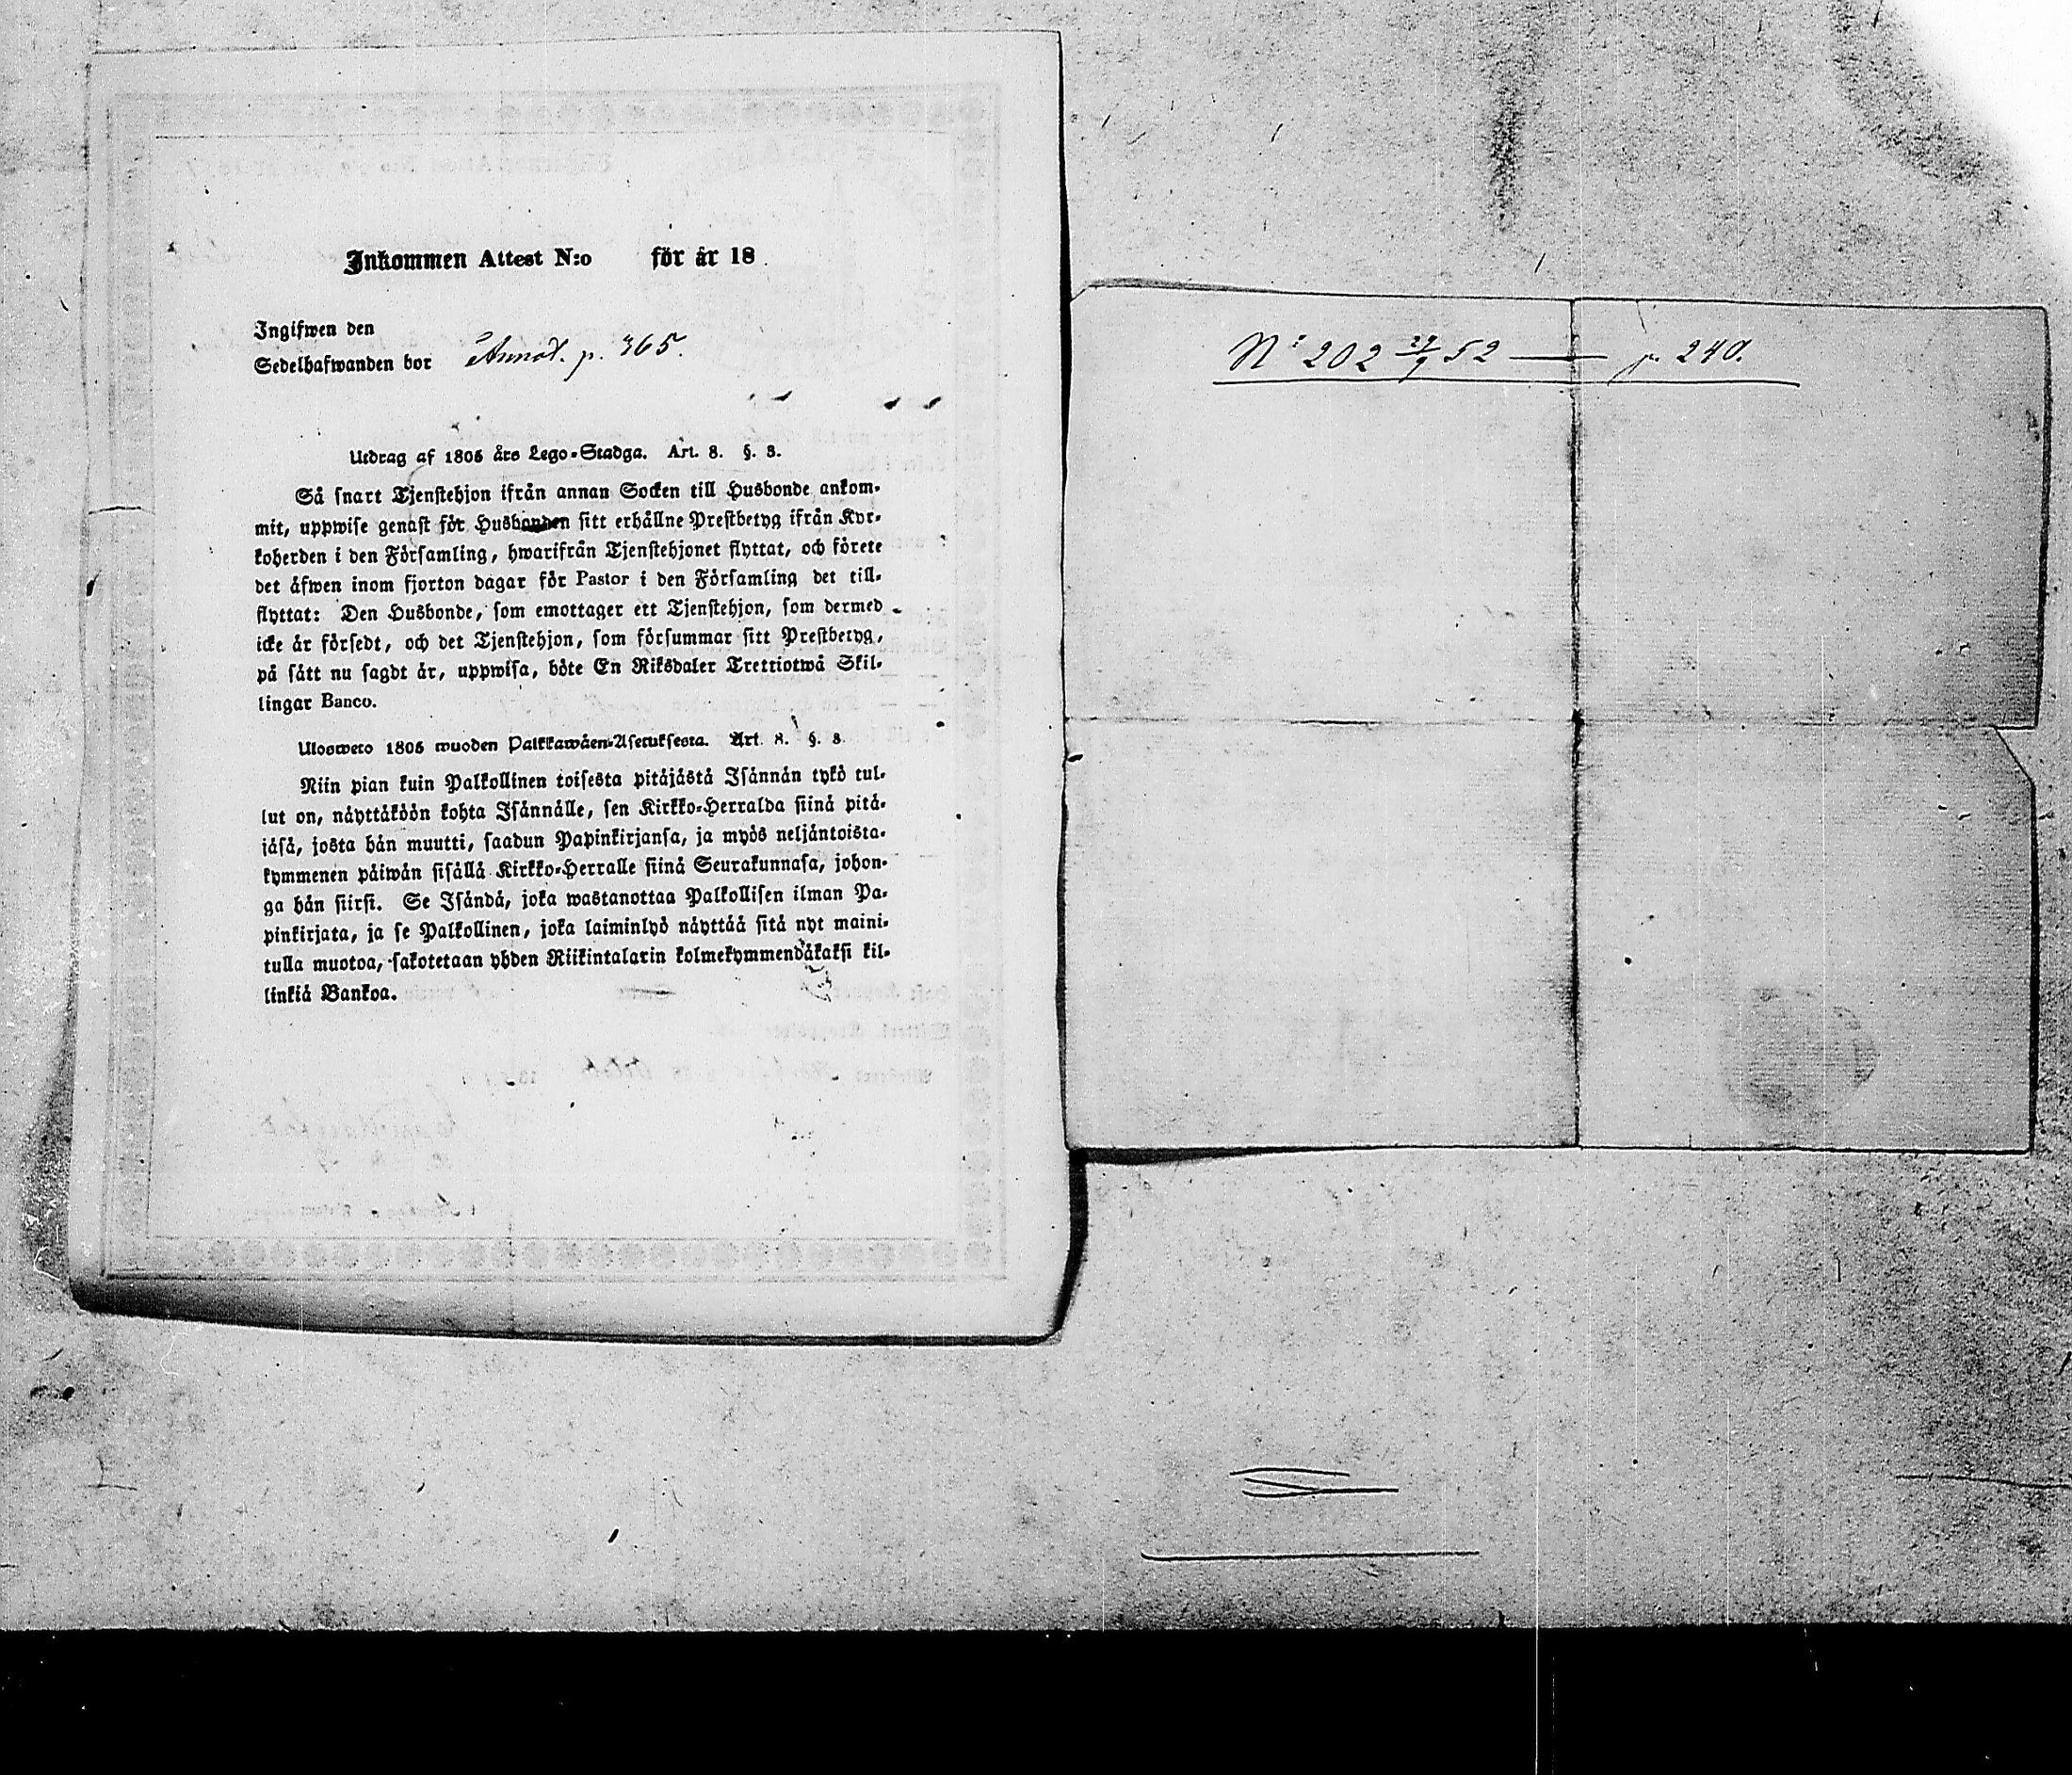 Inkommen Attest N:o för år 18
Ingifwen den
Sedelhafwanden bor Annot. p. 365.
Utdrag af 1805 års Lego-Stadga. Art. 8. §. 3.
Så snart Tjenstehjon ifrån annan Socken till Husbonde ankom-
mit, uppwise genast för Husbonden sitt erhållne Prestbetyg ifrån Kyr-
koherden i den Församling, hwarifrån Tjenstehjonet flyttat, och förete
det äfwen inom fjorton dagar för Pastor i den Församling det till-
flyttat: Den Husbonde, som emottager ett Tjenstehjon, som dermed
icke är försedt, och det Tjenstehjon, som försummar sitt Prestbetyg,
på sätt nu sagdt är, uppwisa, böte En Riksdaler Trettiotwå Skil-
lingar Banco.
Ulosweto 1805 wuoden Palkkawäen-Asetuksesta. Art. 8. §. 3.
Niin pian kuin Palkollinen toisesta pitäjästä Isännän tykö tul-
lut on, näyttäköön kohta Isännälle, sen Kirkko-Herralda siinä pitä-
jäsä, josta hän muutti, saadun Papinkirjansa, ja myös neljäntoista-
kymmenen päiwän sisällä Kirkko-Herralle siinä Seurakunnasa, johon-
ga hän siirsi. Se Isändä, joka wastanottaa Palkollisen ilman Pa-
pinkirjata, ja se Palkollinen, joka laiminlyö näyttää sitä nyt maini-
tulla muotoa, sakotetaan yhden Riikintalarin kolmekymmendäkaksi kil-
linkiä Bankoa.
N:o 202 29/9 52 — p. 240.